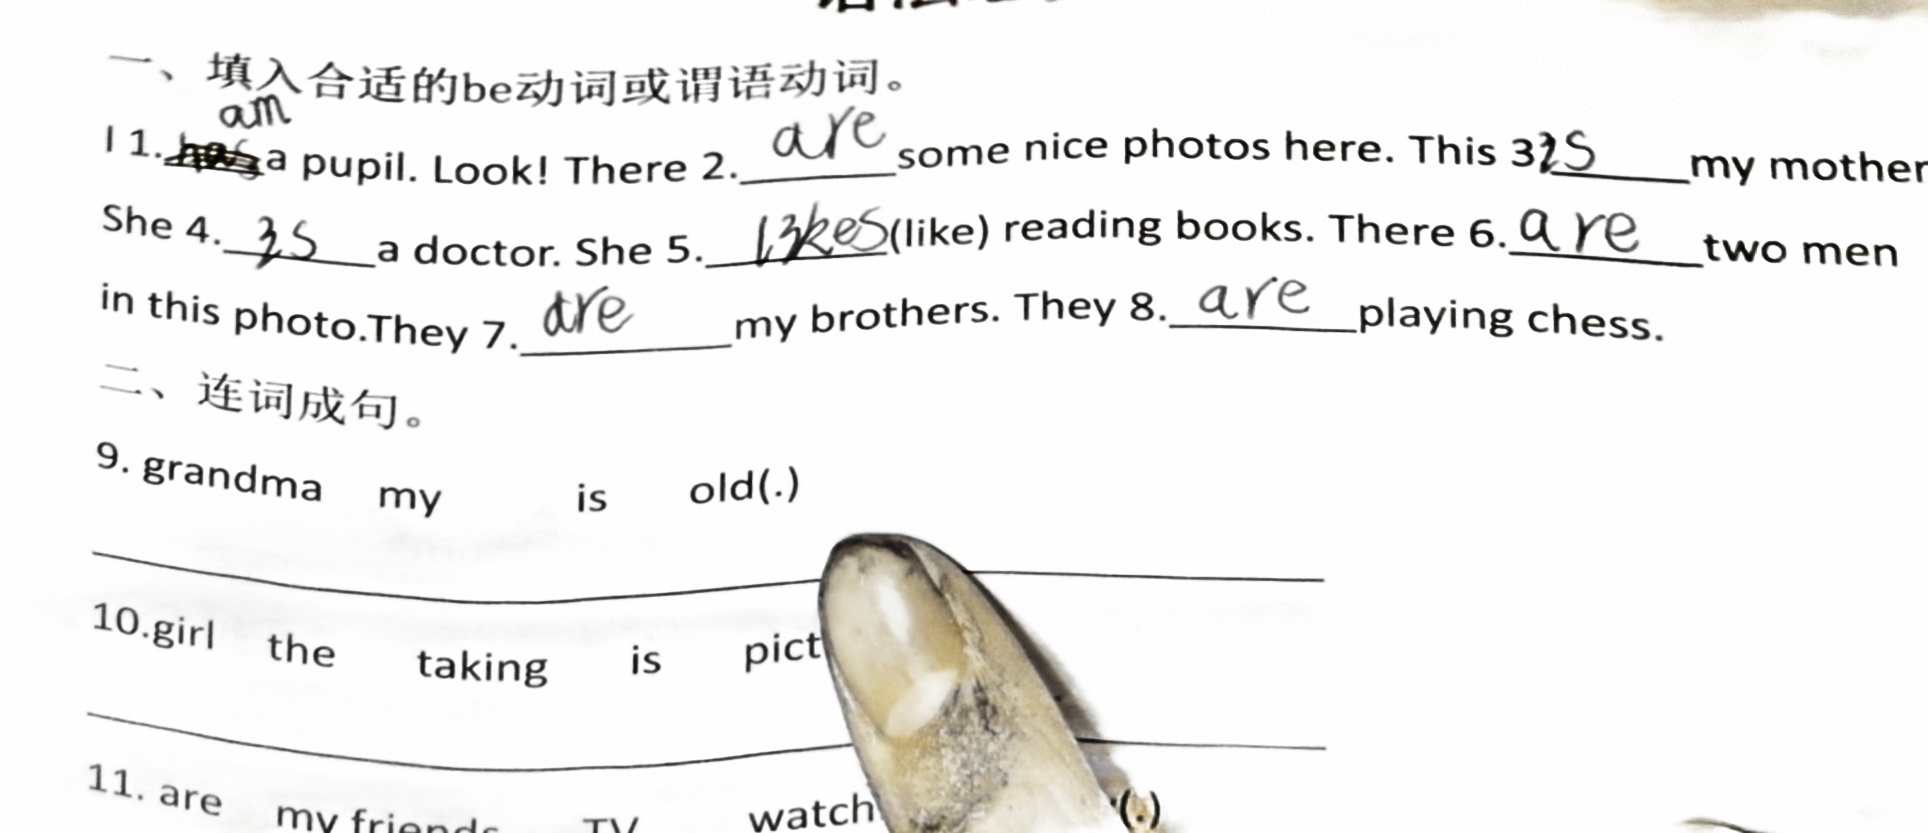 一、填入合适的be动词或谓语动词。
am
I 1. a pupil. Look! There 2. are some nice photos here. This 3 is my mother
She 4. is a doctor. She 5. likes (like) reading books. There 6. are two men
in this photo.They 7. are my brothers. They 8. are playing chess.
二、连词成句。
9. grandma my is old(.)
10.girl the taking is pict
11. are my friends TV watch (.)